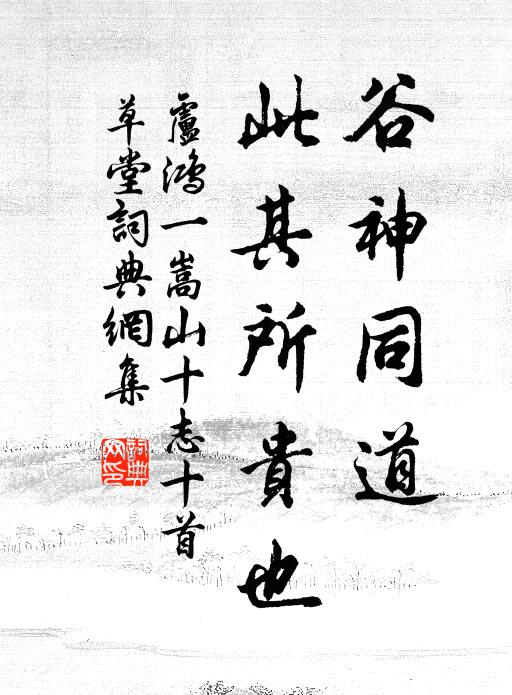 谷神同道
此其所貴也
盧鴻一嵩山十志十首
草堂詞典網集
詞典网印